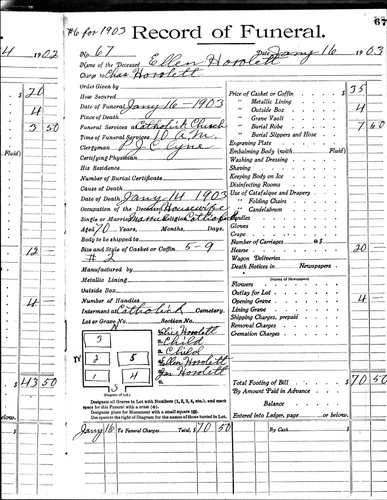 #6 for 1903
Record of Funeral.
67
4 1902
No. 67
Date Jany 16 1903
Name of the Deceased Ellen Howlett
Charge to Chas Howlett
Order Given by
How Secured
Date of Funeral Jany 16 - 1903
Place of Death
Funeral Services Catholick Church
Time of Funeral Services 10 A.M.
Clergyman P.J. Clyne
Certifying Physician
His Residence
Number of Burial Certificate
Cause of Death
Date of Death Jany 14 1903
Occupation of the Deceased Housewife
Single or Married Religion Catholick
Aged 70 Years, Months, Days.
Body to be shipped to
Size and Style of Casket or Coffin 5-9
#2
Manufactured by
Metallic Lining
Outside Box
Number of Handles
Interment at Catholick Cemetery.
Lot or Grave No. Section No.
N
3
2 5
1 4
W
S
(Diagram of Lot.)
Howlett
2 Child
3 Child
4 Ellen Howlett
5 Howlett
6
Designate all Graves in Lot with Numbers (1, 2, 3, 4, etc.), and mark
space for this Funeral with a cross (x).
Designate place for Monument with a small square (□).
Use space to the right of Diagram for the names of those buried in Lot.
Price of Casket or Coffin $ 35
" Metallic Lining
" Outside Box 4
" Grave Vault
" Burial Robe 7 50
" Burial Slippers and Hose
Engraving Plate
Embalming Body (with Fluid)
Washing and Dressing
Shaving
Keeping Body on Ice
Disinfecting Rooms
Use of Catafalque and Drapery
" Folding Chairs
" Candelabrum
Candles
Gloves
Crape
Number of Carriages @ $
Hearse 20
Wagon Deliveries
Death Notices in Newspapers
(Names of Newspapers)
Flowers
Outlay for Lot
Opening Grave 4
Lining Grave
Shipping Charges, prepaid
Removal Charges
Cremation Charges
Total Footing of Bill $ 70 50
By Amount Paid in Advance
Balance
Entered into Ledger, page or below.
Jany 16 To Funeral Charges Total, $ 70 50
By Cash
$ 20
4
3 50
Fluid)
12
4
$ 43 50
below.